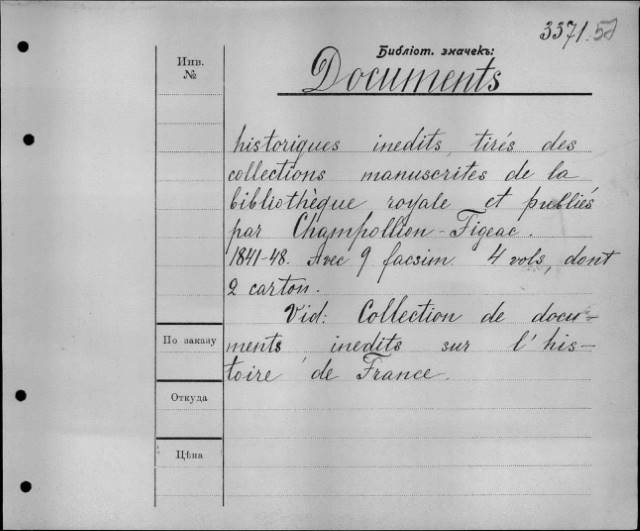 3371.58
Библіот. значекъ:
Инв.
№
Documents
historiques inedits, tirés des
collections manuscrites de la
bibliothèque royale et publiés
par Champollion-Figeac.
1841-48. Avec 9 facsim. 4 vols, dont
2 carton.
Vid: Collection de docu-
По заказу
ments inedits sur l'his-
toire de France.
Откуда
Цѣна